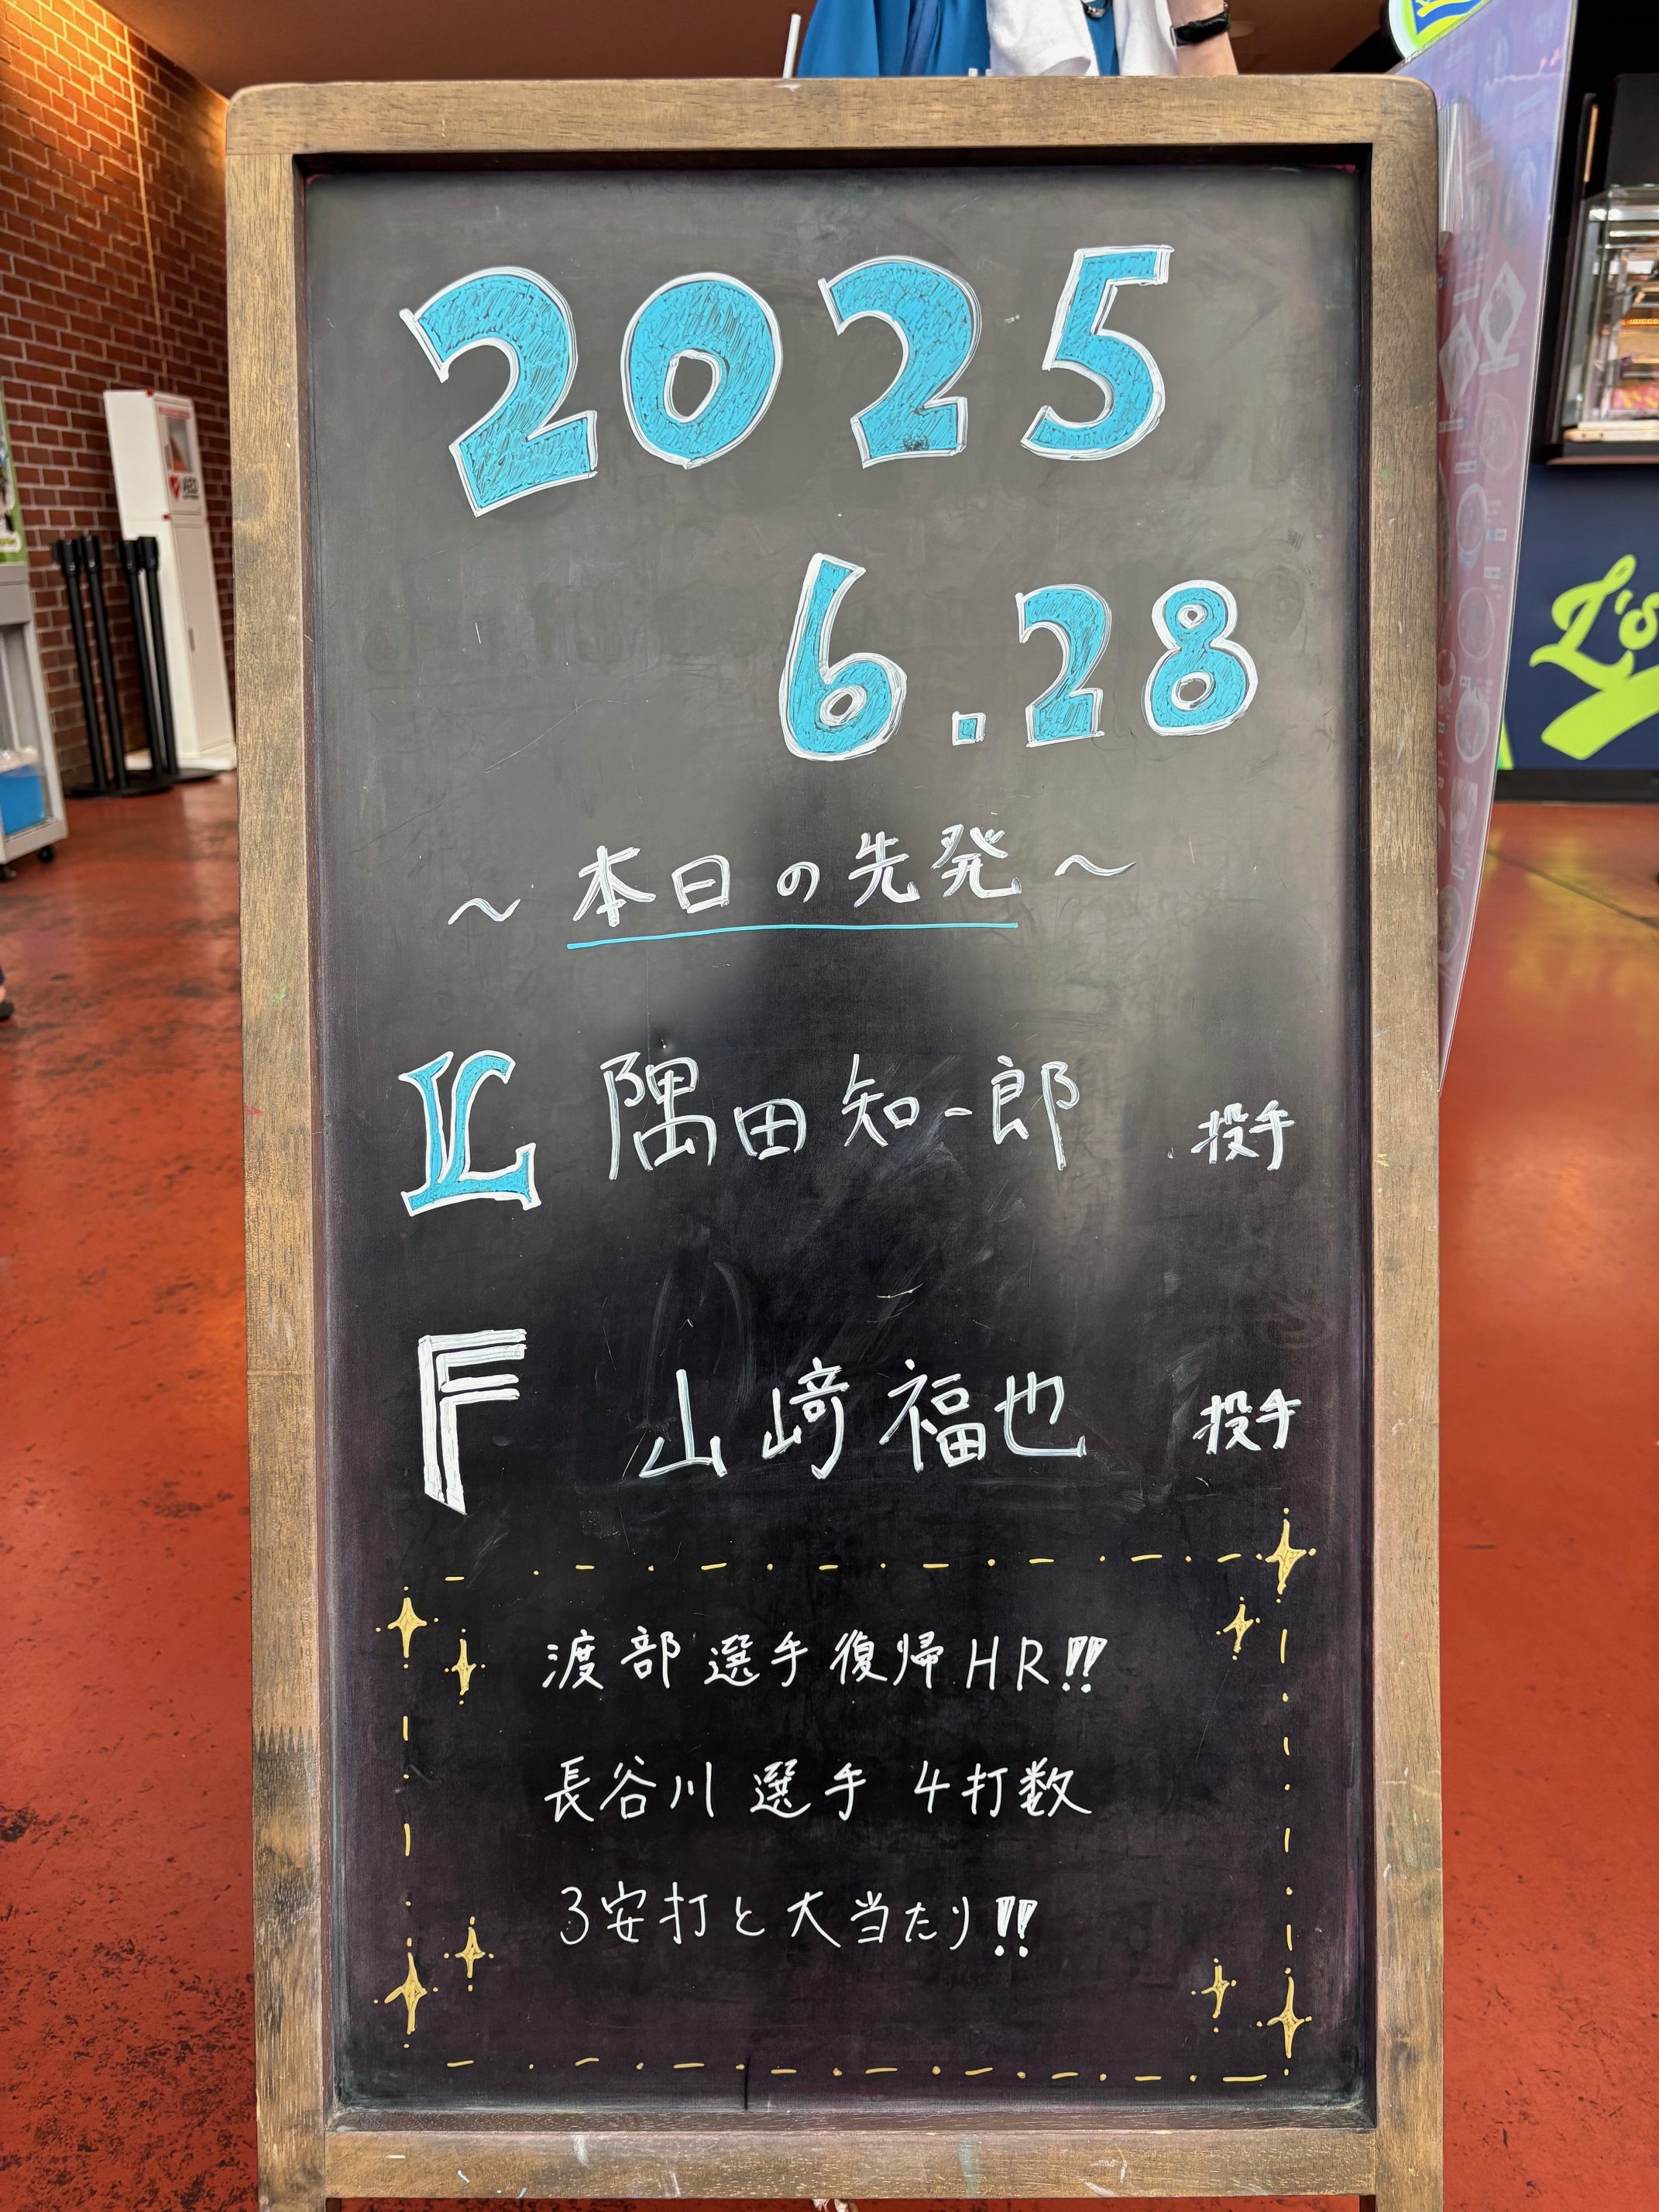 2025
6.28
～本日の先発～
L 隅田知一郎 投手
F 山﨑福也 投手
渡部選手復帰HR!!
長谷川選手 4打数
3安打と大当たり!!
AED
L's